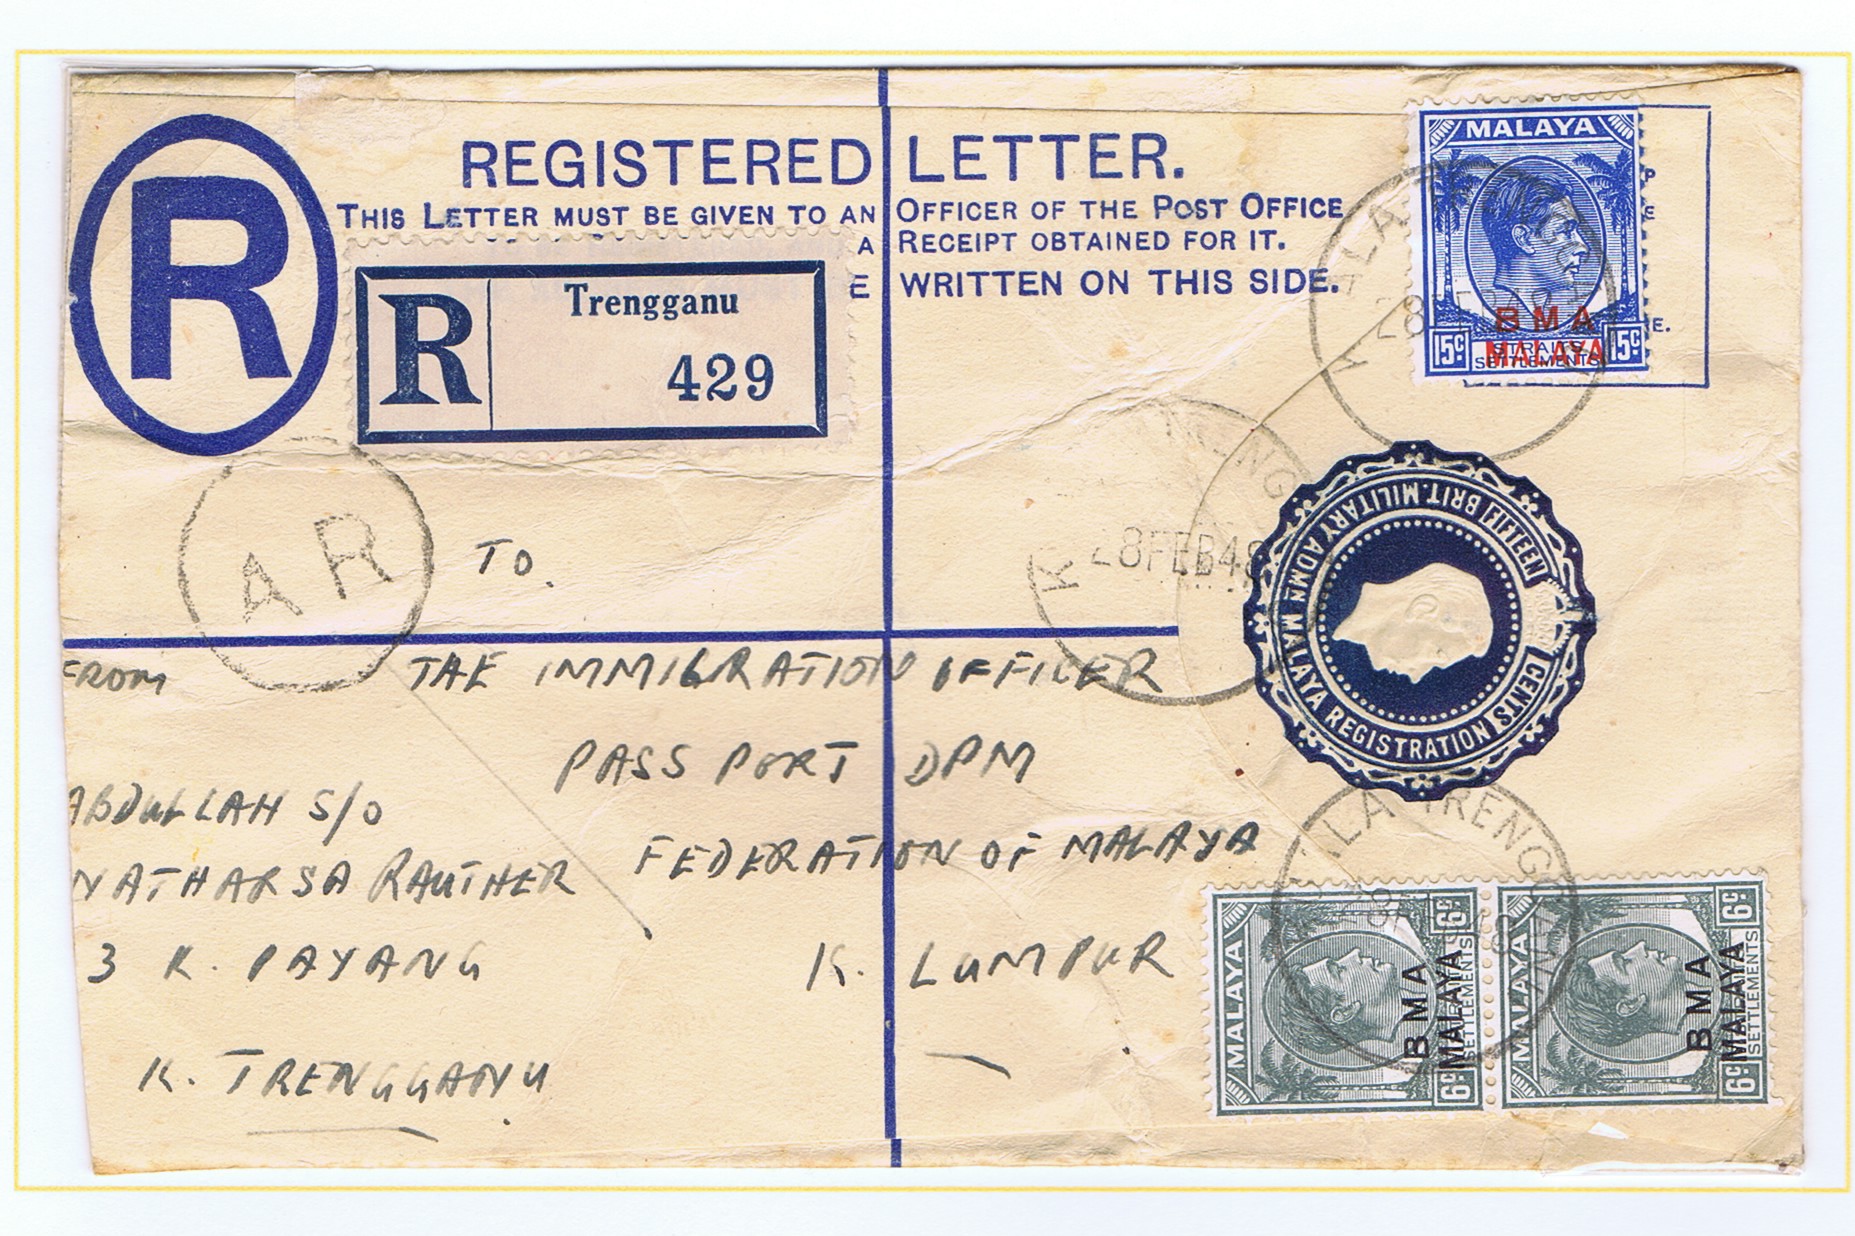 R
REGISTERED LETTER.
THIS LETTER MUST BE GIVEN TO AN OFFICER OF THE POST OFFICE
A RECEIPT OBTAINED FOR IT.
E WRITTEN ON THIS SIDE.
R Trengganu
429
MALAYA
BMA
MALAYA
15c 15c
STRAITS
SETTLEMENTS
P
E
E.
28 FEB 48
AR
TO.
TRENG
K 28 FEB 48
BRIT. MILITARY ADMN. MALAYA REGISTRATION
FIFTEEN CENTS
FROM
THE IMMIGRATION OFFICER
PASS PORT DPM
FEDERATION OF MALAYA
K. LUMPUR
ABDULLAH S/O
NATHARSA RAUTHER
3 K. PAYANG
K. TRENGGANU.
ALA TRENGGANU
MALAYA
BMA
MALAYA
SETTLEMENTS
6c 6c
MALAYA
BMA
MALAYA
SETTLEMENTS
6c 6c